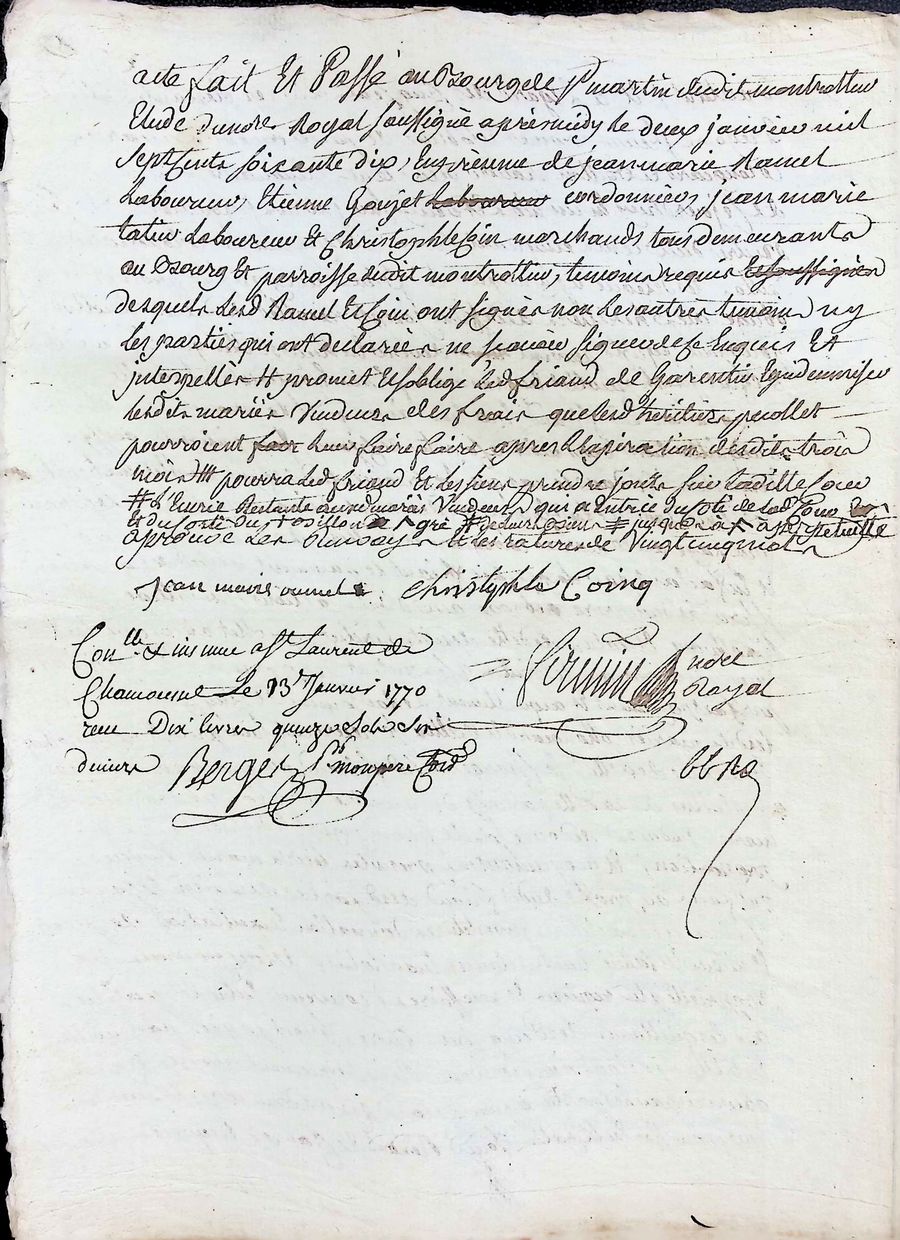 acte fait Et Passé au Bourg de St martin dudit montrottier
Etude du nore Royal soussigné apres midy le deux janvier mil
sept cents soixante dix, En presence de jean marie Ramel
Laboureur, Etienne Goujet Laboureur cordonnier, jean marie
Laboureur Et Christophle Coin marchands tous demeurants
au Bourg Et parroisse dudit montrottier, temoins requis Et soussignés
desquels lesd Ramel Et Coin ont signés non les autres temoins ny
les parties qui ont declarées ne scavoir signer de ce Enquis Et
interpellés # promet Et soblige led friaud de Garentir
lesdits mariés Vendeurs des frais que lesd heritiers
pourroient fair leur faire faire apres Lexpiration desdits trois
mois ## pourra led friaud Et les siens prendre jours sur laditte cour
# L'Eurie Restante auxd mariés Vendeurs qui a Entrée du coté de lad Cour
Et du coté du # de leurs # jusques à
aprouvé les Renvoys Et les ratures de Vingt cinq mots
Jean marie ramel Christophle Coinq
Conllé & insinué a St Laurent de
Chamousset Le 13e Janvier 1770
recu Dix livres quinze sols six
deniers Berger pr mon pere
nore
Royal